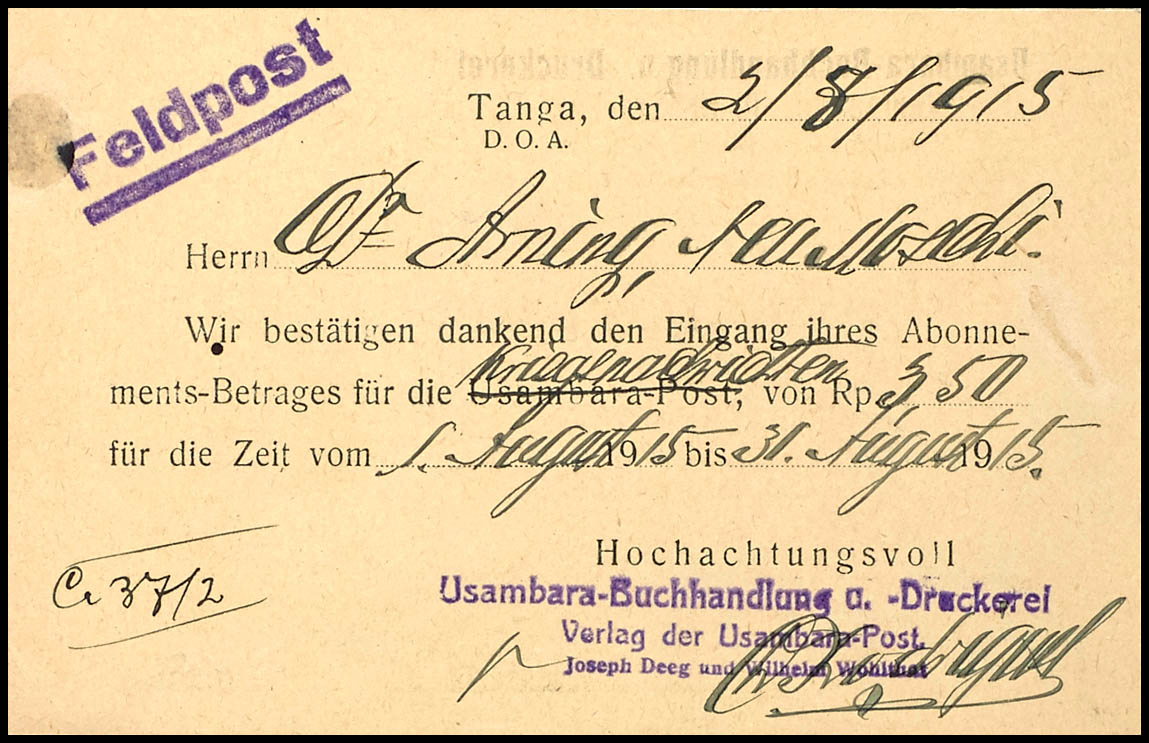 Feldpost
Tanga, den 2/8/1915
D. O. A.
Herrn Dr Arning, Neu Moschi.
Wir bestätigen dankend den Eingang ihres Abonne-
Kriegsnachrichten
ments-Betrages für die Usambara-Post, von Rp. 3 50
für die Zeit vom 1. August 1915 bis 31. August 1915.
Hochachtungsvoll
Usambara-Buchhandlung u. -Druckerei
Verlag der Usambara-Post.
Joseph Deeg und Wilhelm Wohlthat
37/2